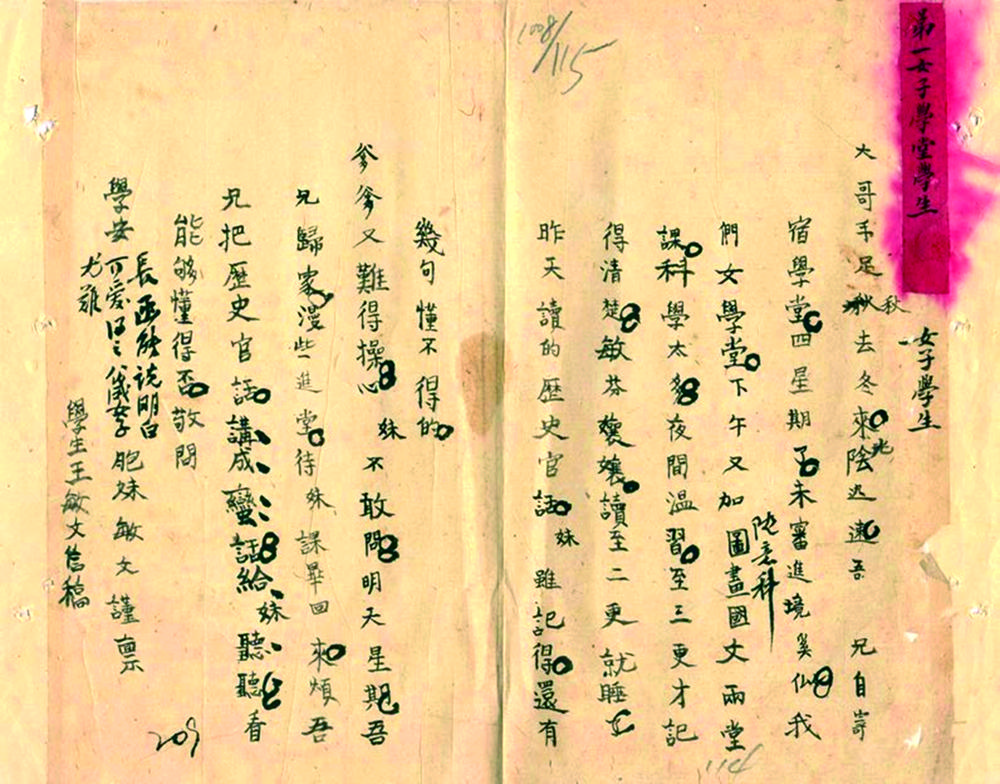 第一女子學堂學生
女子學生
大哥手足秋去冬來陰迅速吾 兄自寄
秋
兆
宿學堂四星期了未審進境奚似我
們女學堂下午又加圖畫國文兩堂
隨意科
課科學太多夜間溫習至三更才記
得清楚敏芬孃孃讀至二更就睡
昨天讀的歷史官話妹雖記得還有
幾句懂不得的
爹爹又難得操心妹不敢問明天星期吾
兄歸家漫些進堂待妹課畢回來煩吾
兄把歷史官話講成蠻話給妹聽聽看
能夠懂得否敬問
學安
胞妹敏文謹禀
長函能說明白
可愛 儀女
尤難
學生王敏文信稿
1008/115
114
209